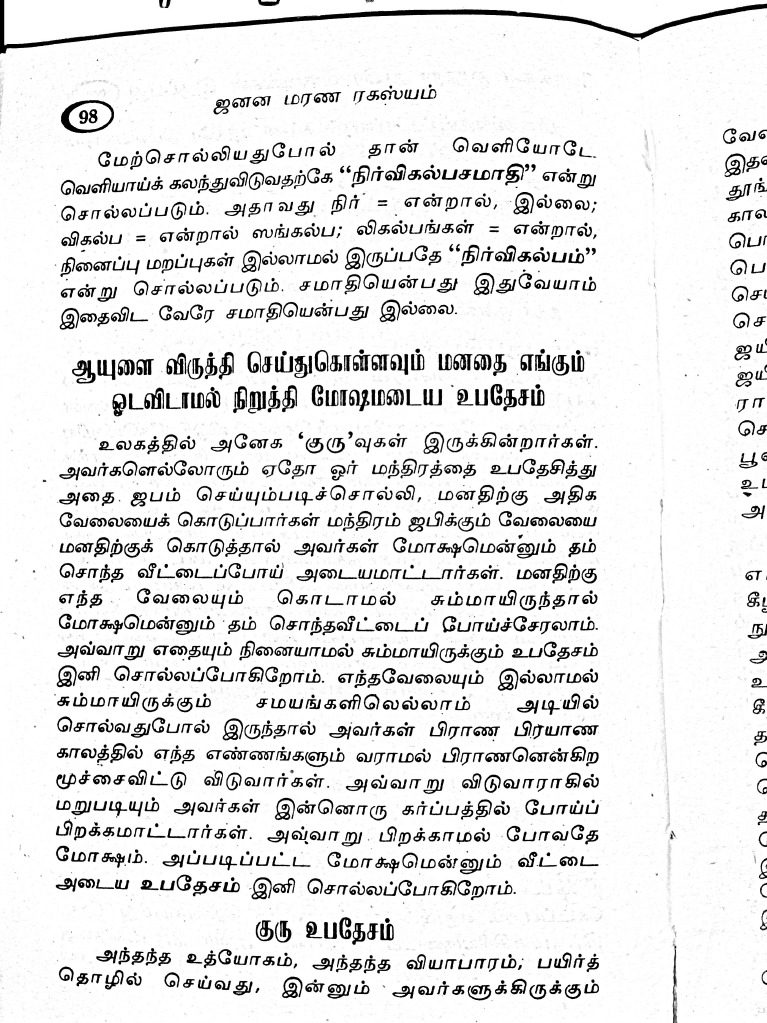 98
ஜனன மரண ரகஸ்யம்
மேற்சொல்லியதுபோல் தான் வெளியோடே
வெளியாய்க் கலந்துவிடுவதற்கே “நிர்விகல்பசமாதி” என்று
சொல்லப்படும். அதாவது நிர் = என்றால், இல்லை;
விகல்ப = என்றால் ஸங்கல்ப; லிகல்பங்கள் = என்றால்,
நினைப்பு மறப்புகள் இல்லாமல் இருப்பதே “நிர்விகல்பம்”
என்று சொல்லப்படும். சமாதியென்பது இதுவேயாம்
இதைவிட வேரே சமாதியென்பது இல்லை.
ஆயுளை விருத்தி செய்துகொள்ளவும் மனதை எங்கும்
ஓடவிடாமல் நிறுத்தி மோஷமடைய உபதேசம்
உலகத்தில் அனேக ‘குரு’வுகள் இருக்கின்றார்கள்.
அவர்களெல்லோரும் ஏதோ ஓர் மந்திரத்தை உபதேசித்து
அதை ஜபம் செய்யும்படிச்சொல்லி, மனதிற்கு அதிக
வேலையைக் கொடுப்பார்கள் மந்திரம் ஜபிக்கும் வேலையை
மனதிற்குக் கொடுத்தால் அவர்கள் மோக்ஷமென்னும் தம்
சொந்த வீட்டைப்போய் அடையமாட்டார்கள். மனதிற்கு
எந்த வேலையும் கொடாமல் சும்மாயிருந்தால்
மோக்ஷமென்னும் தம் சொந்தவீட்டைப் போய்ச்சேரலாம்.
அவ்வாறு எதையும் நினையாமல் சும்மாயிருக்கும் உபதேசம்
இனி சொல்லப்போகிறோம். எந்தவேலையும் இல்லாமல்
சும்மாயிருக்கும் சமயங்களிலெல்லாம் அடியில்
சொல்வதுபோல் இருந்தால் அவர்கள் பிராண பிரயாண
காலத்தில் எந்த எண்ணங்களும் வராமல் பிராணனென்கிற
மூச்சைவிட்டு விடுவார்கள். அவ்வாறு விடுவாராகில்
மறுபடியும் அவர்கள் இன்னொரு கர்ப்பத்தில் போய்ப்
பிறக்கமாட்டார்கள். அவ்வாறு பிறக்காமல் போவதே
மோக்ஷம். அப்படிப்பட்ட மோக்ஷமென்னும் வீட்டை
அடைய உபதேசம் இனி சொல்லப்போகிறோம்.
குரு உபதேசம்
அந்தந்த உத்யோகம், அந்தந்த வியாபாரம், பயிர்த்
தொழில் செய்வது, இன்னும் அவர்களுக்கிருக்கும்